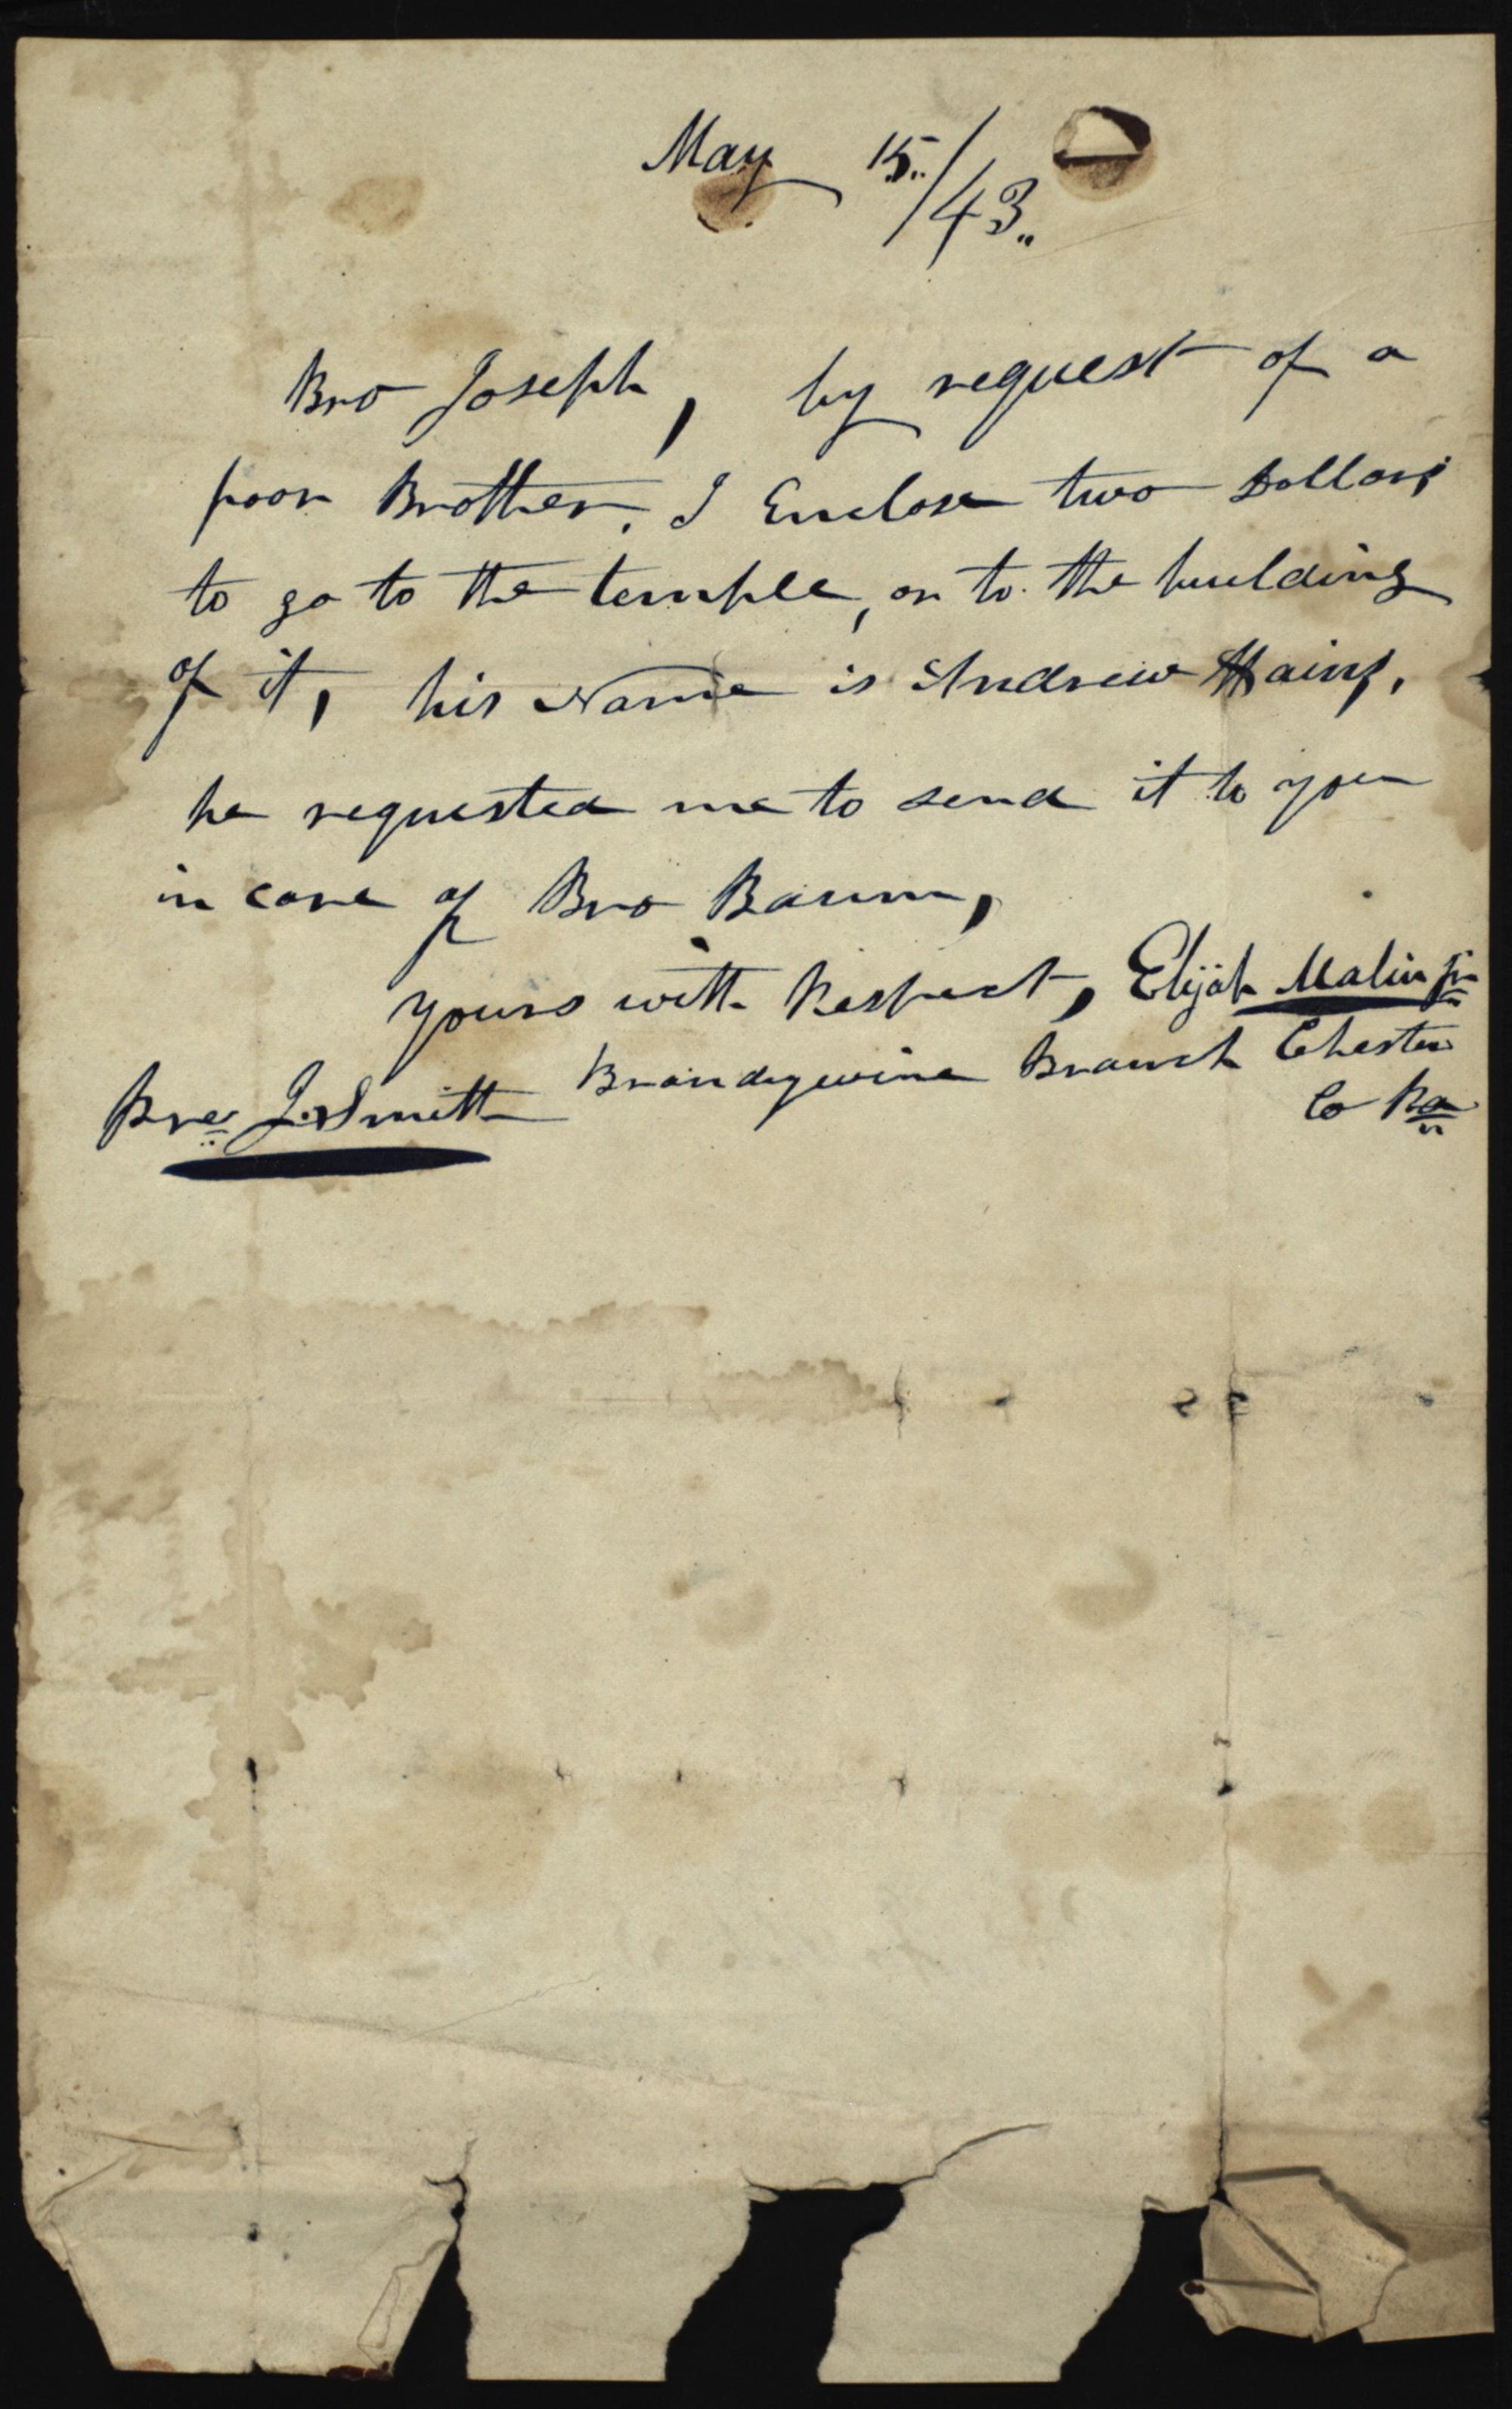 May 15../43..
Bro Joseph, by request of a
poor Brother. I Enclose two Dollars
to go to the temple, or to the building
of it, his Name is Andrew Hains,
he requested me to send it to you
in care of Bro Baum,
yours with Respect, Elijah Malin Jr
Brandywine Branch Chester
Co Pa
Pre J. Smith